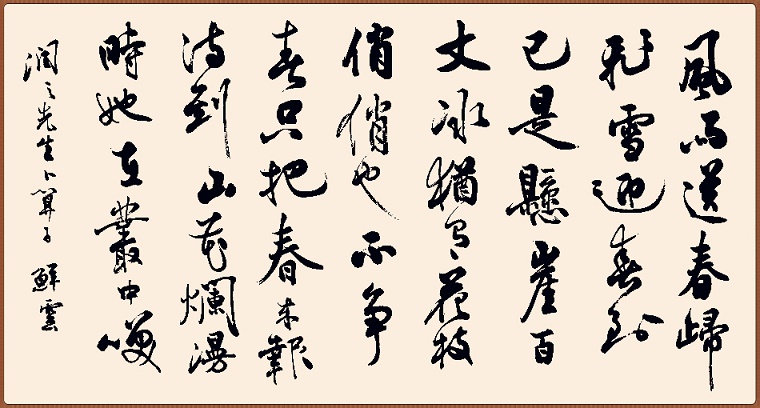 風雨送春歸
飛雪迎春到
已是懸崖百
丈冰猶有花枝
俏俏也不爭
春只把春來報
待到山花爛漫
時她在叢中咲
潤之先生卜算子 鮮雲